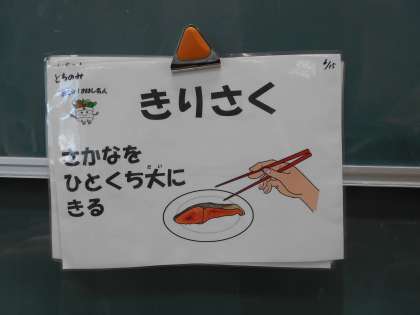 とちのみ
6/15
きりさく
さかなを
ひとくち大に
だい
きる